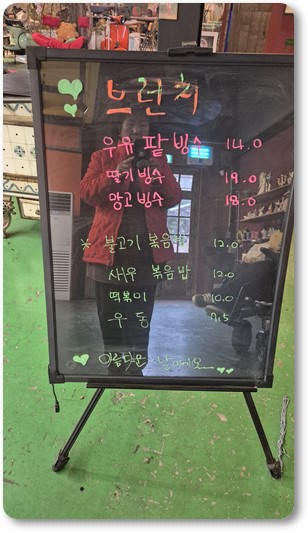 브런치
우유 팥빙수 14.0
딸기빙수 19.0
망고빙수 18.0
※ 불고기 볶음밥 12.0
새우 볶음밥 12.0
떡볶이 10.0
우동 7.5
아름다운 날이에요